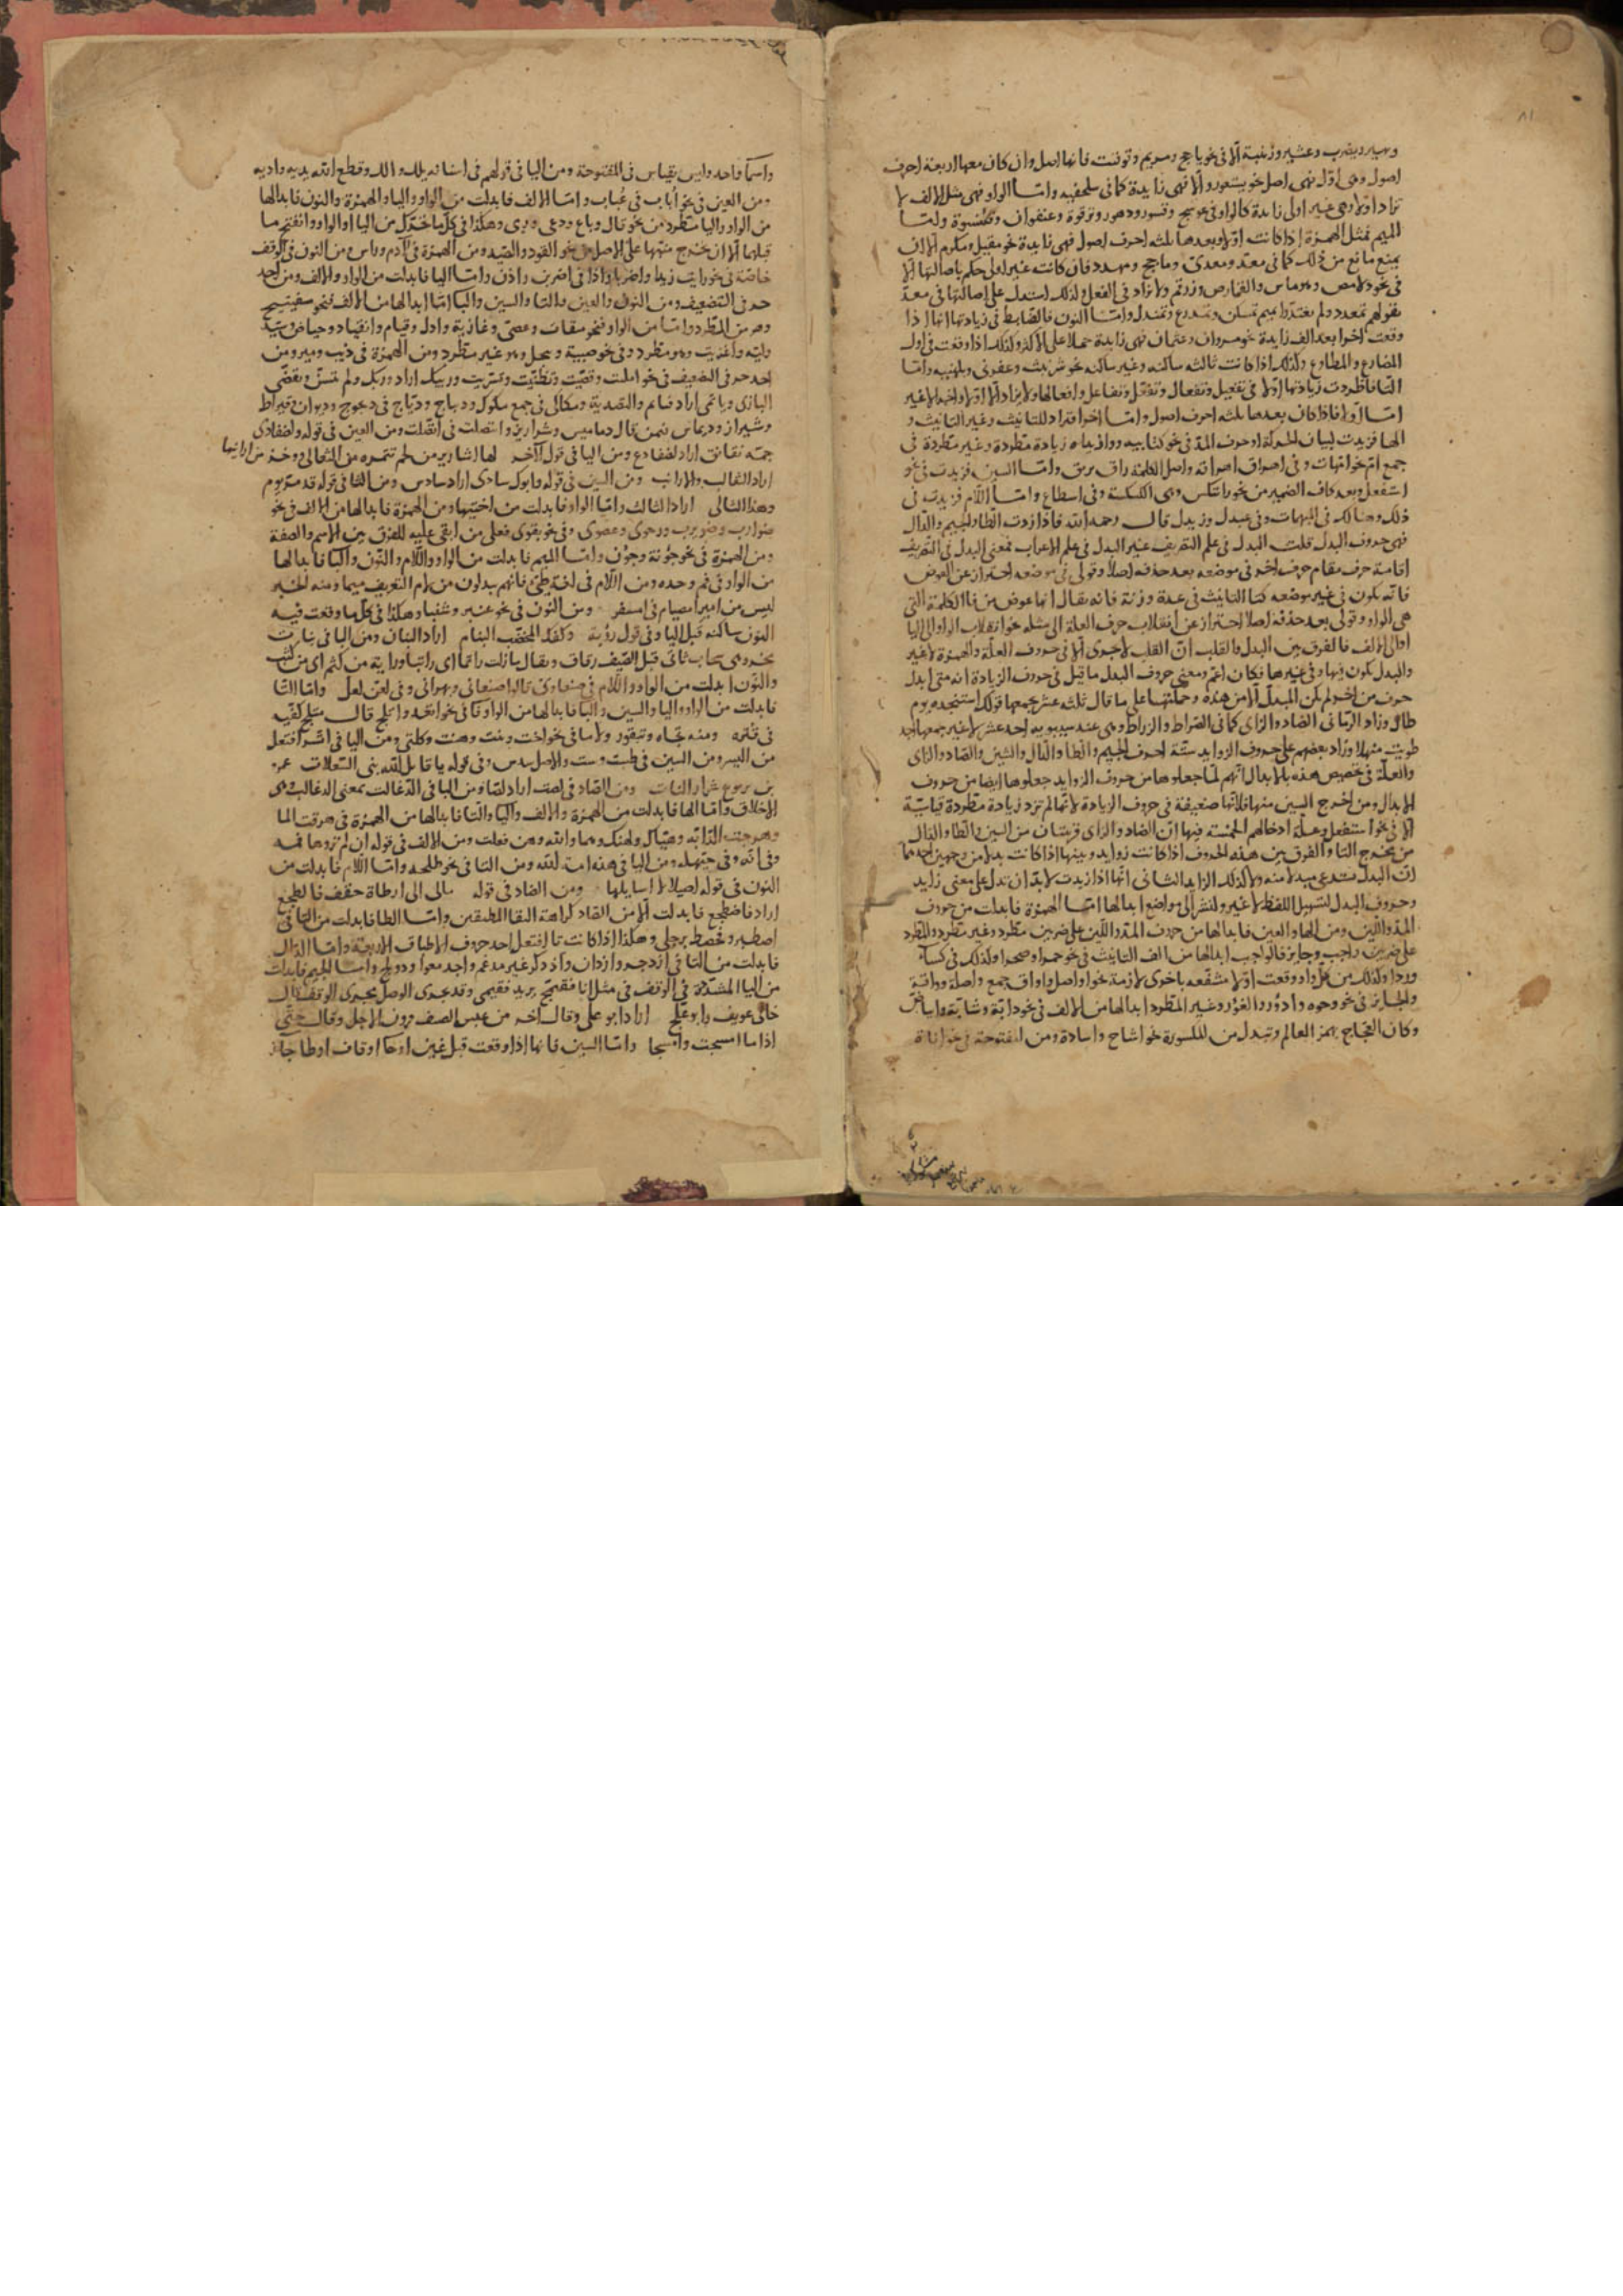 ويضرب وعشير وزنبية الا فى نحو ياجج ومريم فانها اصل وان كان معها اربعة احرف
اصول وهى اول فهى اصل نحو يستعور والا فهى زايدة كما فى سلحفيه وامـا الواو فهى مثل الالف لا
تزاد اولا وهى غير اولى زايدة كالواو فى عوسج وقسور ودهور وترقوة وعنفوان وقلنسوة وامـا
الميم فمثل الهمزة اذا كانت اولا وبعدها ثلثه احرف اصول فهى زايدة نحو مقبل ومكرم الا ان
يمنع مانع من ذلك كما فى معد ومعدى وماجج ومهدد فان كانت غير اولى حكم باصالتها الا
فى نحو دلامص وهرماس والقمارص وزرقم ولا تزاد فى الفعل ولذلك استدل على اصالتها فى معد
بقولهم تمعدد ولم يعتدوا بميم تمسكن وتمدرع وتمندل وامـا النون فالضابط فى زيادتها انها اذا
وقعت اخرا بعد الف زايدة نحو مروان وعثمان فهى زايدة حملا على الاكثر وكذلك اذا وقعت فى اول
المضارع والمطاوع وكذلك اذا كانت ثالثه ساكنه وغير ساكنه نحو شرنبث وعفرنى وبلهنيه وامـا
التا فاطردت زيادتها اولا فى تفعيل وتفعال وتفعل وتفاعل وافعالها ولا تزاد الا اولا واخرا لا غير
امـا اولا فاذا كان بعدها ثلثه احرف اصول وامـا اخرا فتزاد للتانيث وغير التانيث و
الها فزيدت لبيان الحركة او حرف المد فى نحو كتابيه ووازيداه زيادة مطردة وغير مطردة فى
جمع ام نحو امهات وفى اهراق اهراقه واصل الكلمة راق يريق وامـا السين فزيدت فى نحو
استفعل وبعد كاف الضمير من نحو راتكس وهى الكسكسة وفى اسطاع وامـا اللام فزيدت فى
ذلك وهنالك فى المبهمات وفى عبدل وزيدل قال رحمه الله فاذا زدت الطا والجيم والدال
فهى حروف البدل قلت البدل فى علم التصريف غير البدل فى علم الاعراب فمعنى البدل فى التصريف
اقامة حرف مقام حرف اخر فى موضعه بعد حذفه اصلا وقولى فى موضعه احتراز عن العوض
فانه يكون فى غير موضعه كتا التانيث فى عدة وزنة فانه يقال انها عوض من فا الكلمة التى
هى الواو وقولى بعد حذفه اصلا احتراز عن انقلاب حرف العلة الى مثله نحو انقلاب الواو الى اليا
او الى الالف فالفرق بين البدل والقلب ان القلب لا يجرى الا فى حروف العلة والهمزة لا غير
والبدل يكون فيها وفى غيرها فكان اعم ومعنى حروف البدل ما قيل فى حروف الزيادة انه متى ابدل
حرف من اخر لم يكن المبدل الا من هذه وجملتها على ما قال ثلثه عشر يجمعها قولك استنجده يوم
طال وزاد الرمانى الصاد والزاى كما فى الصراط والزراط وهى عند سيبويه احد عشر لا غير يجمعها اجد
طويت منهلا وزاد بعضهم على حروف الزوايد ستة احرف الجيم والطا والدال والشين والصاد والزاى
والعلة فى تخصيص هذه بالابدال انهم لما جعلوها من حروف الزوايد جعلوها ايضا من حروف
الابدال ومن اخرج السين منها فلانها ضعيفة فى حروف الزيادة لانها لم تزد زيادة مطردة قياسية
الا فى نحو استفعل وعلة ادخالهم الخمسة فيها ان الصاد والزاى قريبتان من السين والطا والدال
من مخرج التا والفرق بين هذه الحروف اذا كانت زوايد وبينها اذا كانت بدلا من وجهين احدهما
ان البدل يستدعى مبدلا منه ولا كذلك الزايد الثانى انها اذا زيدت لابد ان تدل على معنى زايد
وحروف البدل لتسهيل اللفظ لا غير ولنشر الى مواضع ابدالها امـا الهمزة فابدلت من حروف
المد واللين ومن الها والعين فابدالها من حروف المد واللين على ضربين مطرد وغير مطرد والمطرد
على ضربين واجب وجايز فالواجب ابدالها من الف التانيث فى نحو حمرا وصحرا وكذلك فى كسا
وردا وكذلك من كل واو وقعت اولا مشفعه باخرى لازمة نحو اواصل واواق جمع واصلة وواقية
والجايز فى نحو وجوه وادؤر والغؤر وغير المطرد ابدالها من الالف فى نحو دابة وشابة وابياض
وكان العجاج يهمز العالم وتبدل من المكسورة نحو اشاح واسادة ومن المفتوحة فى نحو اناة
واسما واحد وليس بقياس فى المفتوحة ومن اليا فى قولهم فى اسنانه يلل والل وقطع الله يديه واديه
ومن العين فى نحو اباب فى عباب وامـا الالف فابدلت من الواو واليا والهمزة والنون فابدالها
من الواو واليا مطرد من نحو قال وباع ودعى ورمى وهكذا فى كل ما تحرك من اليا او الواو وانفتح ما
قبلهما الا ان يخرج منهما على الاصل نحو القود والصيد ومن الهمزة فى آدم وراس ومن النون فى الوقف
خاصة فى نحو رايت زيدا واضربا واذا فى اضربن واذن وامـا اليا فابدلت من الواو والالف ومن احد
حرفى التضعيف ومن النون والعين والتا والسين والبا امـا ابدالها من الالف فنحو مفيتيح
وهو من المطرد وامـا من الواو فنحو ميقات وعصى وغازية وادل وقيام وانقياد وحياض وسيد
وليه واغزيت وهو مطرد وفى نحو صبية وييجل وهو غير مطرد ومن الهمزة فى ذيب ومير ومن
احد حرفى التضعيف فى نحو امليت وقصيت وتظنيت وتسريت وربيك اراد وربك ولم يتسن وتقضى
البازى وياتمى اراد ياتم والتصدية ومكاكى فى جمع مكوك وديباج وديباج فى دجوج وديوان وقيراط
وشيراز وديماس فيمن قال دماميس وشراريز وايتصلت فى اتصلت ومن العين فى قوله ولضفادى
جمه نقانق اراد لضفادع ومن اليا فى قول الاخر لها اشارير من لحم تتمره من الثعالى ووخز من ارانيها
اراد الثعالب والارانب ومن السين فى قوله وابوك سادى اراد سادس ومن الثا فى قوله قد مر يوم
وهذا الثالى اراد الثالث وامـا الواو فابدلت من اختيها ومن الهمزة فابدالها من الالف فى نحو
ضوارب وضويرب ورحوى وعصوى وفى نحو بقوى فعلى من ابقى عليه للفرق بين الاسم والصفة
ومن الهمزة فى نحو جونة وجون وامـا الميم فابدلت من الواو واللام والنون والبا فابدالها
من الواو فى فم وحده ومن اللام فى لغة طيئ فانهم يبدلون من لام التعريف ميما ومنه الخبر
ليس من امبر امصيام فى امسفر ومن النون فى نحو عنبر وشنبا وهكذا فى كل ما وقعت فيه
النون ساكنه قبل البا وفى قول رؤبة وكفك المخضب البنام اراد البنان ومن البا فى بنات
بخر وهى سحاب تاتى قبل الصيف رقاق ويقال ما زلت راتما اى راتبا ورايته من كثم اى من كثب
والنون ابدلت من الواو واللام فى صنعاوى قالوا صنعانى وبهرانى وفى لعن لعل وامـا التا
فابدلت من الواو واليا والسين والبا فابدالها من الواو فا فى نحو اتعد واتلج قال متلج كفيه
فى قتره ومنه تجاه وتيقور ولاما فى نحو اخت وبنت وهنت وكلتى ومن اليا فى اتسر افتعل
من اليسر ومن السين فى طست وست والاصل سدس وفى قوله يا قاتل الله بنى السعلات عمرو
بن يربوع شرار النات ومن الصاد فى لصت اراد لصا ومن البا فى الذعالت بمعنى الذعالب وهى
الاخلاق وامـا الها فابدلت من الهمزة والالف واليا والتا فابدالها من الهمزة فى هرقت الما
وهرحت الدابة وهياك ولهنك وهما والله وهن فعلت ومن الالف فى قوله ان لم تروها فمه
وفى انه وفى حيهله ومن اليا فى هذه امة الله ومن التا فى نحو طلحه وامـا اللام فابدلت من
النون فى قوله اصيلالا اسايلها ومن الضاد فى قوله مال الى ارطاة حقف فالطجع
اراد فاضطجع فابدلت الا من الضاد كراهة التقا المطبقين وامـا الطا فابدلت من التا فى
اصطبر وفحصط برجلى وهكذا اذا كانت تا افتعل احد حروف الاطباق الاربعة وامـا الدال
فابدلت من التا فى ازدجر وازدان واذدكر غير مدغم واجدمعوا ودولج وامـا الجيم فابدلت
من اليا المشددة فى الوقف فى مثل انا فقيمج يريد فقيمى وقد يجرى الوصل مجرى الوقف قال
خالى عويف وابو علج اراد ابو على وقال اخر من عبس الصيف قرون الاجل وقال حتى
اذا ما امسجت وامسجا وامـا السين فانها اذا وقعت قبل غين او خا او قاف او طا جاز